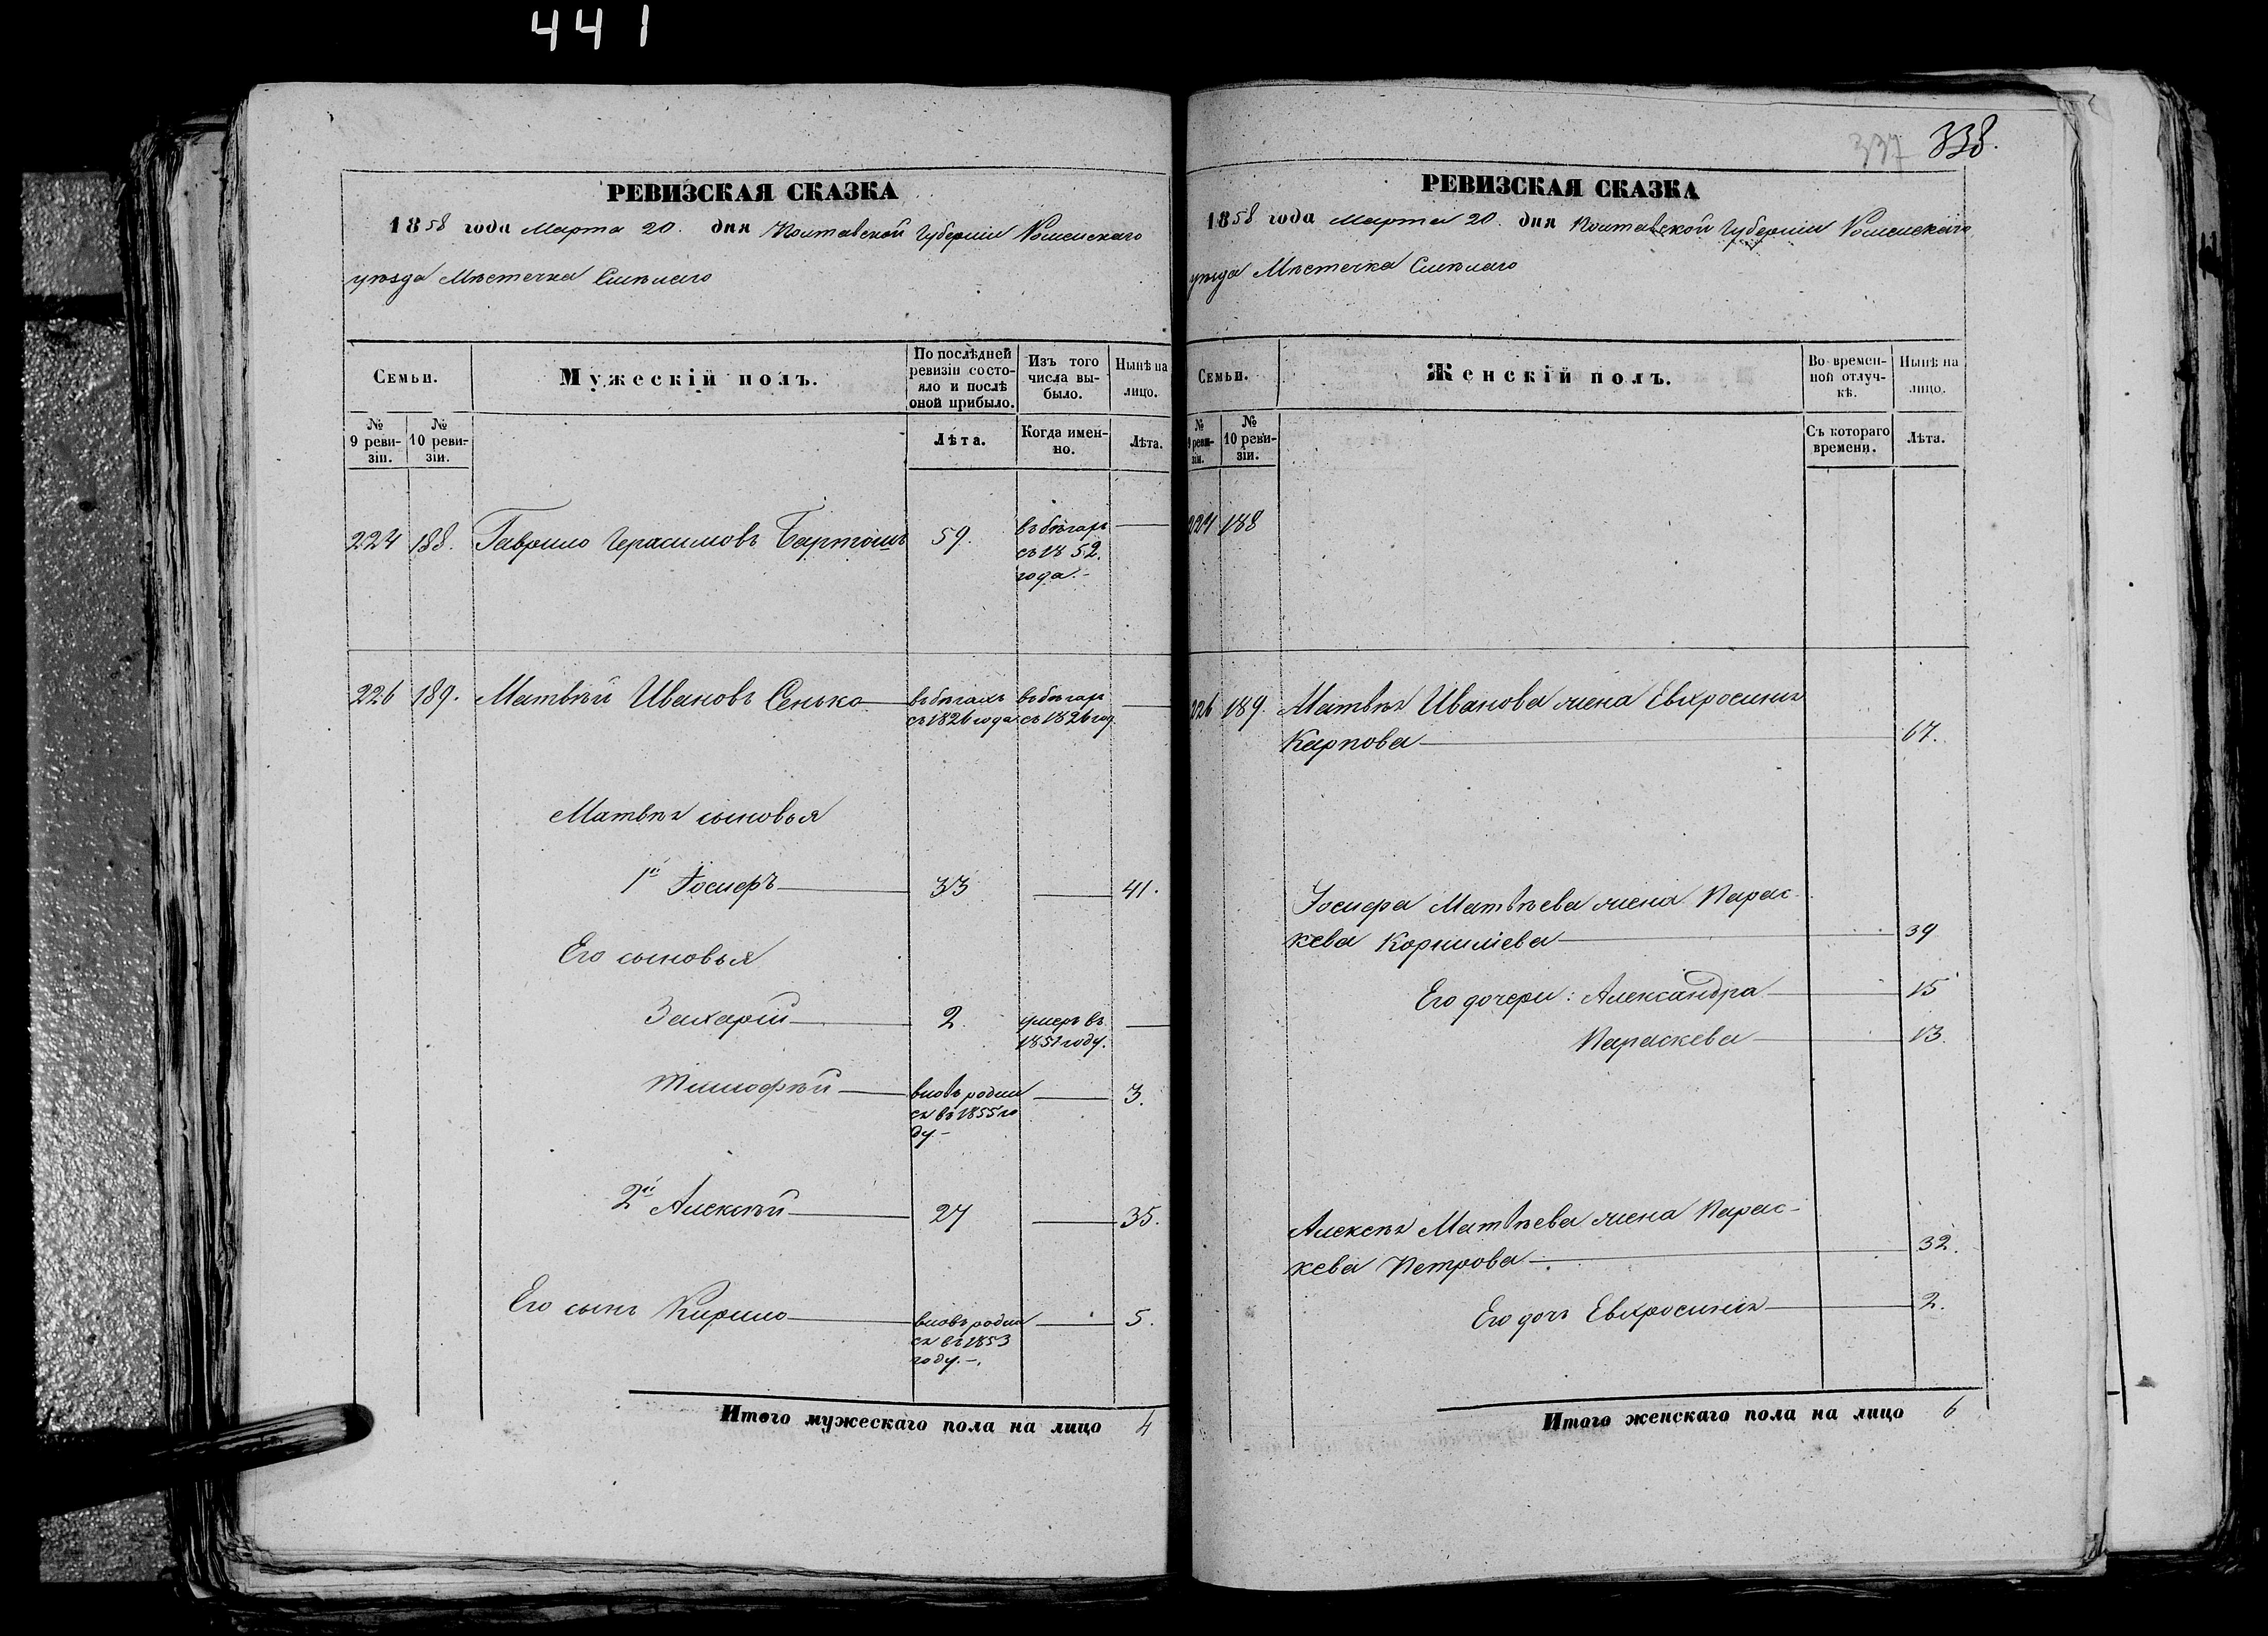 441
РЕВИЗСКАЯ СКАЗКА
1858 года Марта 20. дня Полтавской Губерніи Роменскаго
уѣзда Мѣстечка Смѣлаго
Семьи.
Мужескій полъ.
По послѣдней ревизіи состояло и послѣ оной прибыло.
Изъ того числа выбыло.
Нынѣ на лицо.
№ 9 ревизіи.
№ 10 ревизіи.
Лѣта.
Когда именно.
Лѣта.
224 188. Гаврило Герасимовъ Бартошъ 59. въ бѣгахъ
съ 1852.
года.-
226 189. Матвѣй Ивановъ Сенько въ бѣгахъ въ бѣгахъ
съ 1826 года съ 1826 год
Матвѣя сыновья
1й Іосифъ 33 41.
Его сыновья
Захарій 2. умеръ въ
1851 году.
Тимофѣй вновь родил 3.
ся въ 1855 го
ду.-
2й Алексѣй 27 35.
Его сынъ Кирило вновь родил 5.
ся въ 1853
году.-
Итого мужескаго пола на лицо 4
337 338.
РЕВИЗСКАЯ СКАЗКА
1858 года Марта 20. дня Полтавской Губерніи Роменскаго
уѣзда Мѣстечка Смѣлаго
Семьи.
Женскій полъ.
Во временной отлучкѣ.
Нынѣ на лицо.
№ 9 ревизіи.
№ 10 ревизіи.
Съ котораго времени.
Лѣта.
224 188
226 189. Матвѣя Иванова жена Евфросинія
Карпова 67.
Іосифа Матвѣева жена Парас-
кева Корниліева 39
Его дочери: Александра 15
Параскева 13.
Алексѣя Матвѣева жена Парас-
кева Петрова 32.
Его дочь Евфросинія 2.
Итого женскаго пола на лицо 6